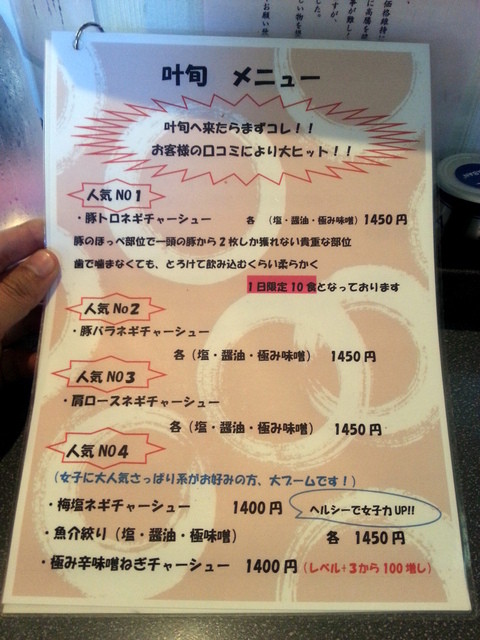 叶旬 メニュー
叶旬へ来たらまずコレ！！
お客様の口コミにより大ヒット！！
人気NO1
・豚トロネギチャーシュー 各 （塩・醤油・極み味噌）1450円
豚のほっぺ部位で一頭の豚から2枚しか獲れない貴重な部位
歯で噛まなくても、とろけて飲み込むくらい柔らかく
1日限定10食となっております
人気No2
・豚バラネギチャーシュー
各（塩・醤油・極み味噌） 1450円
人気NO3
・肩ロースネギチャーシュー
各（塩・醤油・極み味噌） 1450円
人気NO4
（女子に大人気さっぱり系がお好みの方、大ブームです！）
・梅塩ネギチャーシュー 1400円 ヘルシーで女子力UP!!
・魚介絞り（塩・醤油・極味噌） 各 1450円
・極み辛味噌ねぎチャーシュー 1400円（レベル+3から100増し）